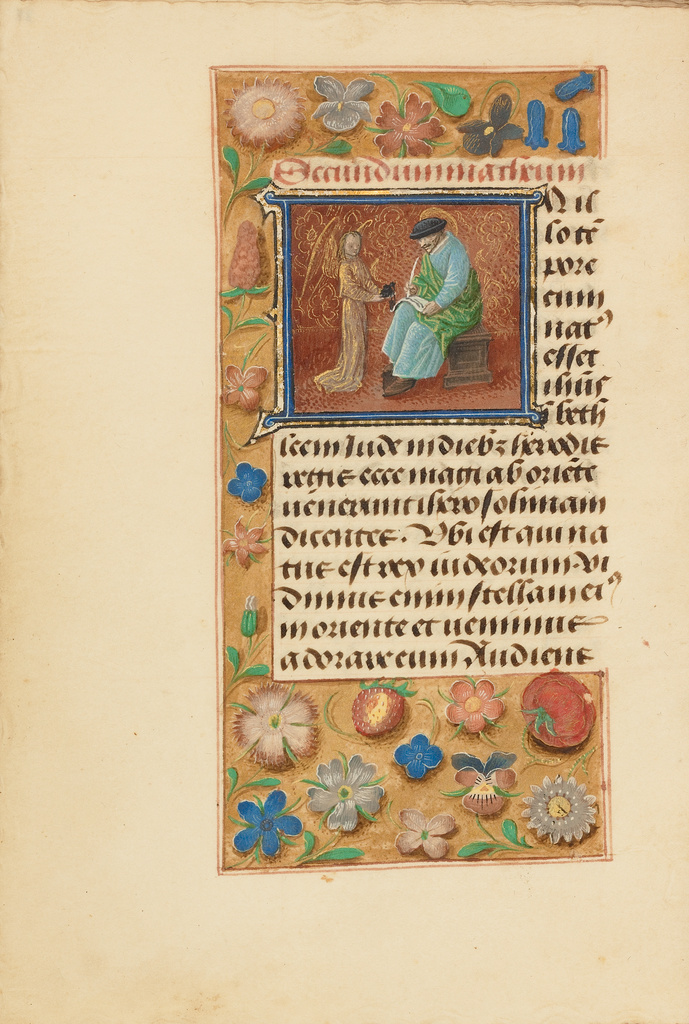 Secundum matheum
In il
lo tẽ
pore
cum
natꝰ
esset
ihũs
ĩ beth
leem Jude in diebꝫ herodis
regis ecce magi ab oriẽte
uenerunt iherosolimam
dicentes. Vbi est qui na
tus est rex iudeorum. Vi
dimus enim stellam eiꝰ
in oriente et uenimus
adorare eum Audiens